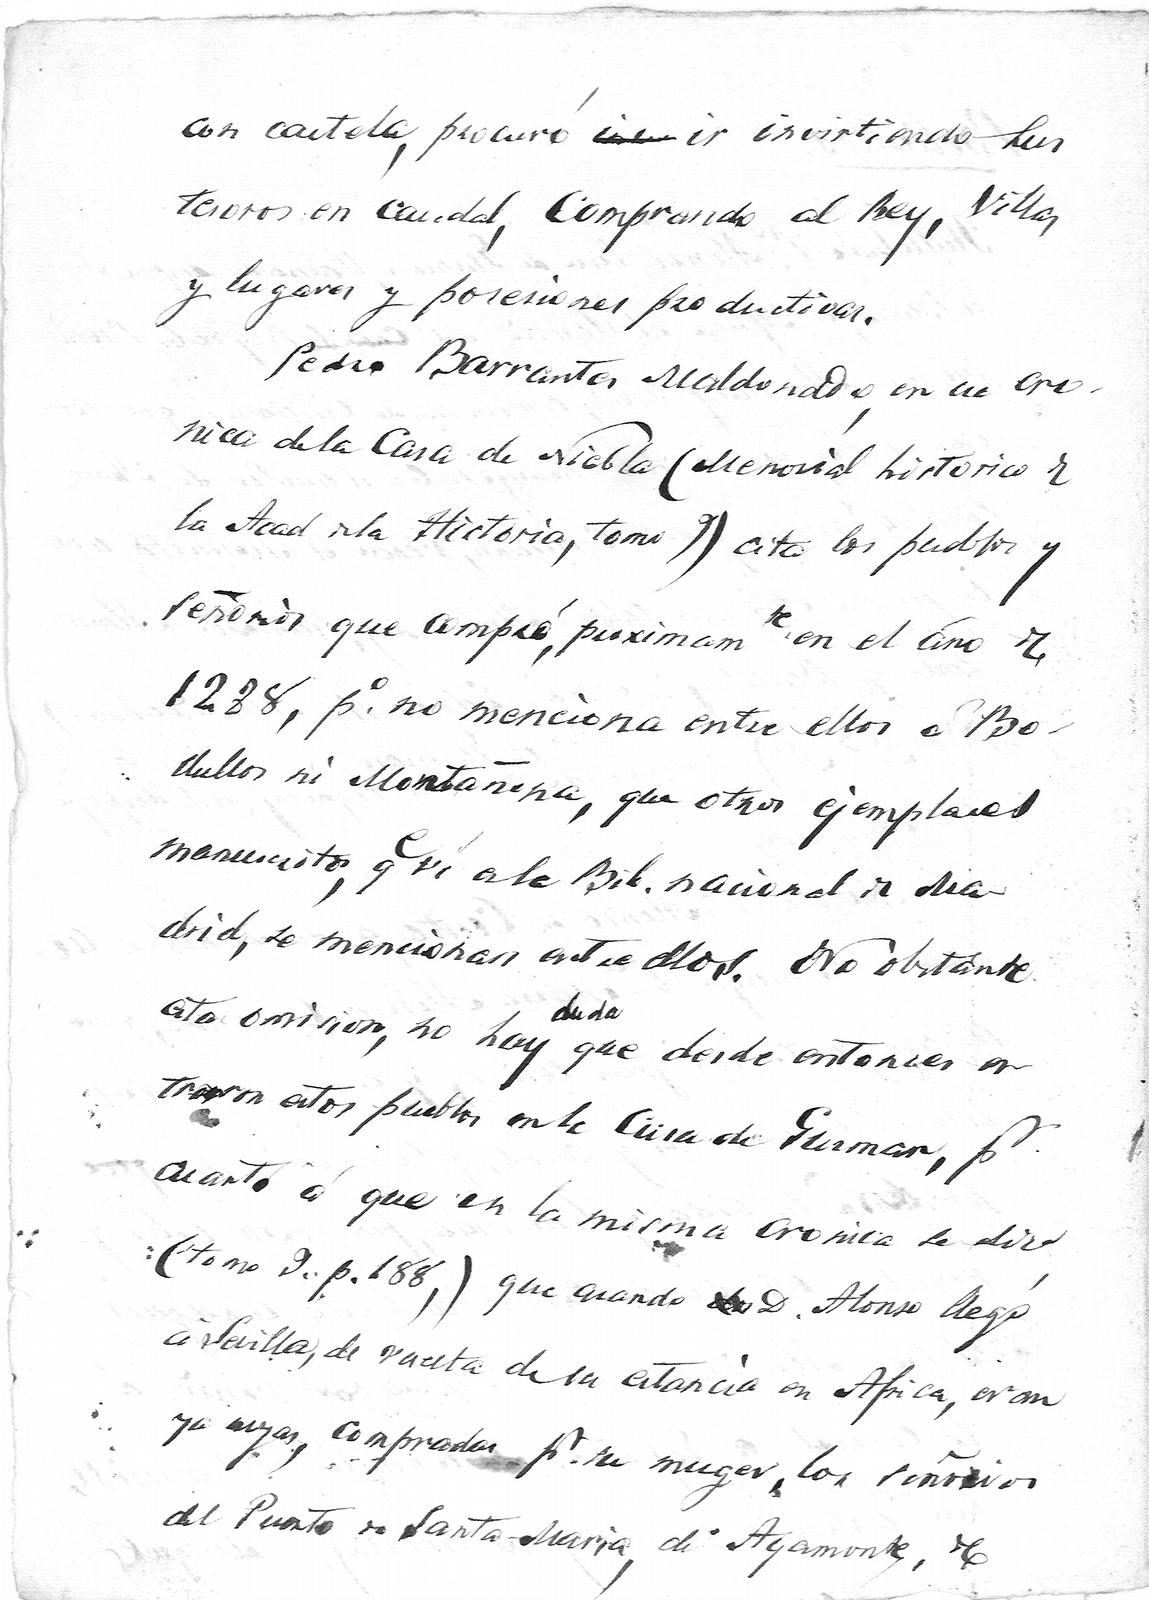 con cautela, procuró ir invirtiendo sus
tesoros en caudal, comprando al Rey, Villas
y lugares y posesiones productivas.
Pedro Barrantes Maldonado, en su cro-
nica de la Casa de Niebla (Memorial historico de
la Acad de la Historia, tomo 9) cita los pueblos y
señorios que compró, proximamte en el año de
1288, po. no menciona entre ellos a Bo-
llullos ni Montañina, que otros ejemplares
manuscritos, qe ví en la Bib. nacional de Ma-
drid, se mencionan entre ellos. No obstante
esta omision, no hay duda que desde entonces en
traron estos pueblos en la Casa de Guzman, pr.
cuanto á que en la misma cronica se dice
(tomo 9. p. 188,) que cuando D. Alonso llegó
á Sevilla, de vuelta de su estancia en Africa, eran
ya suyas, compradas pr. su muger, los señorios
del Puerto de Santa Maria, de Ayamonte, de